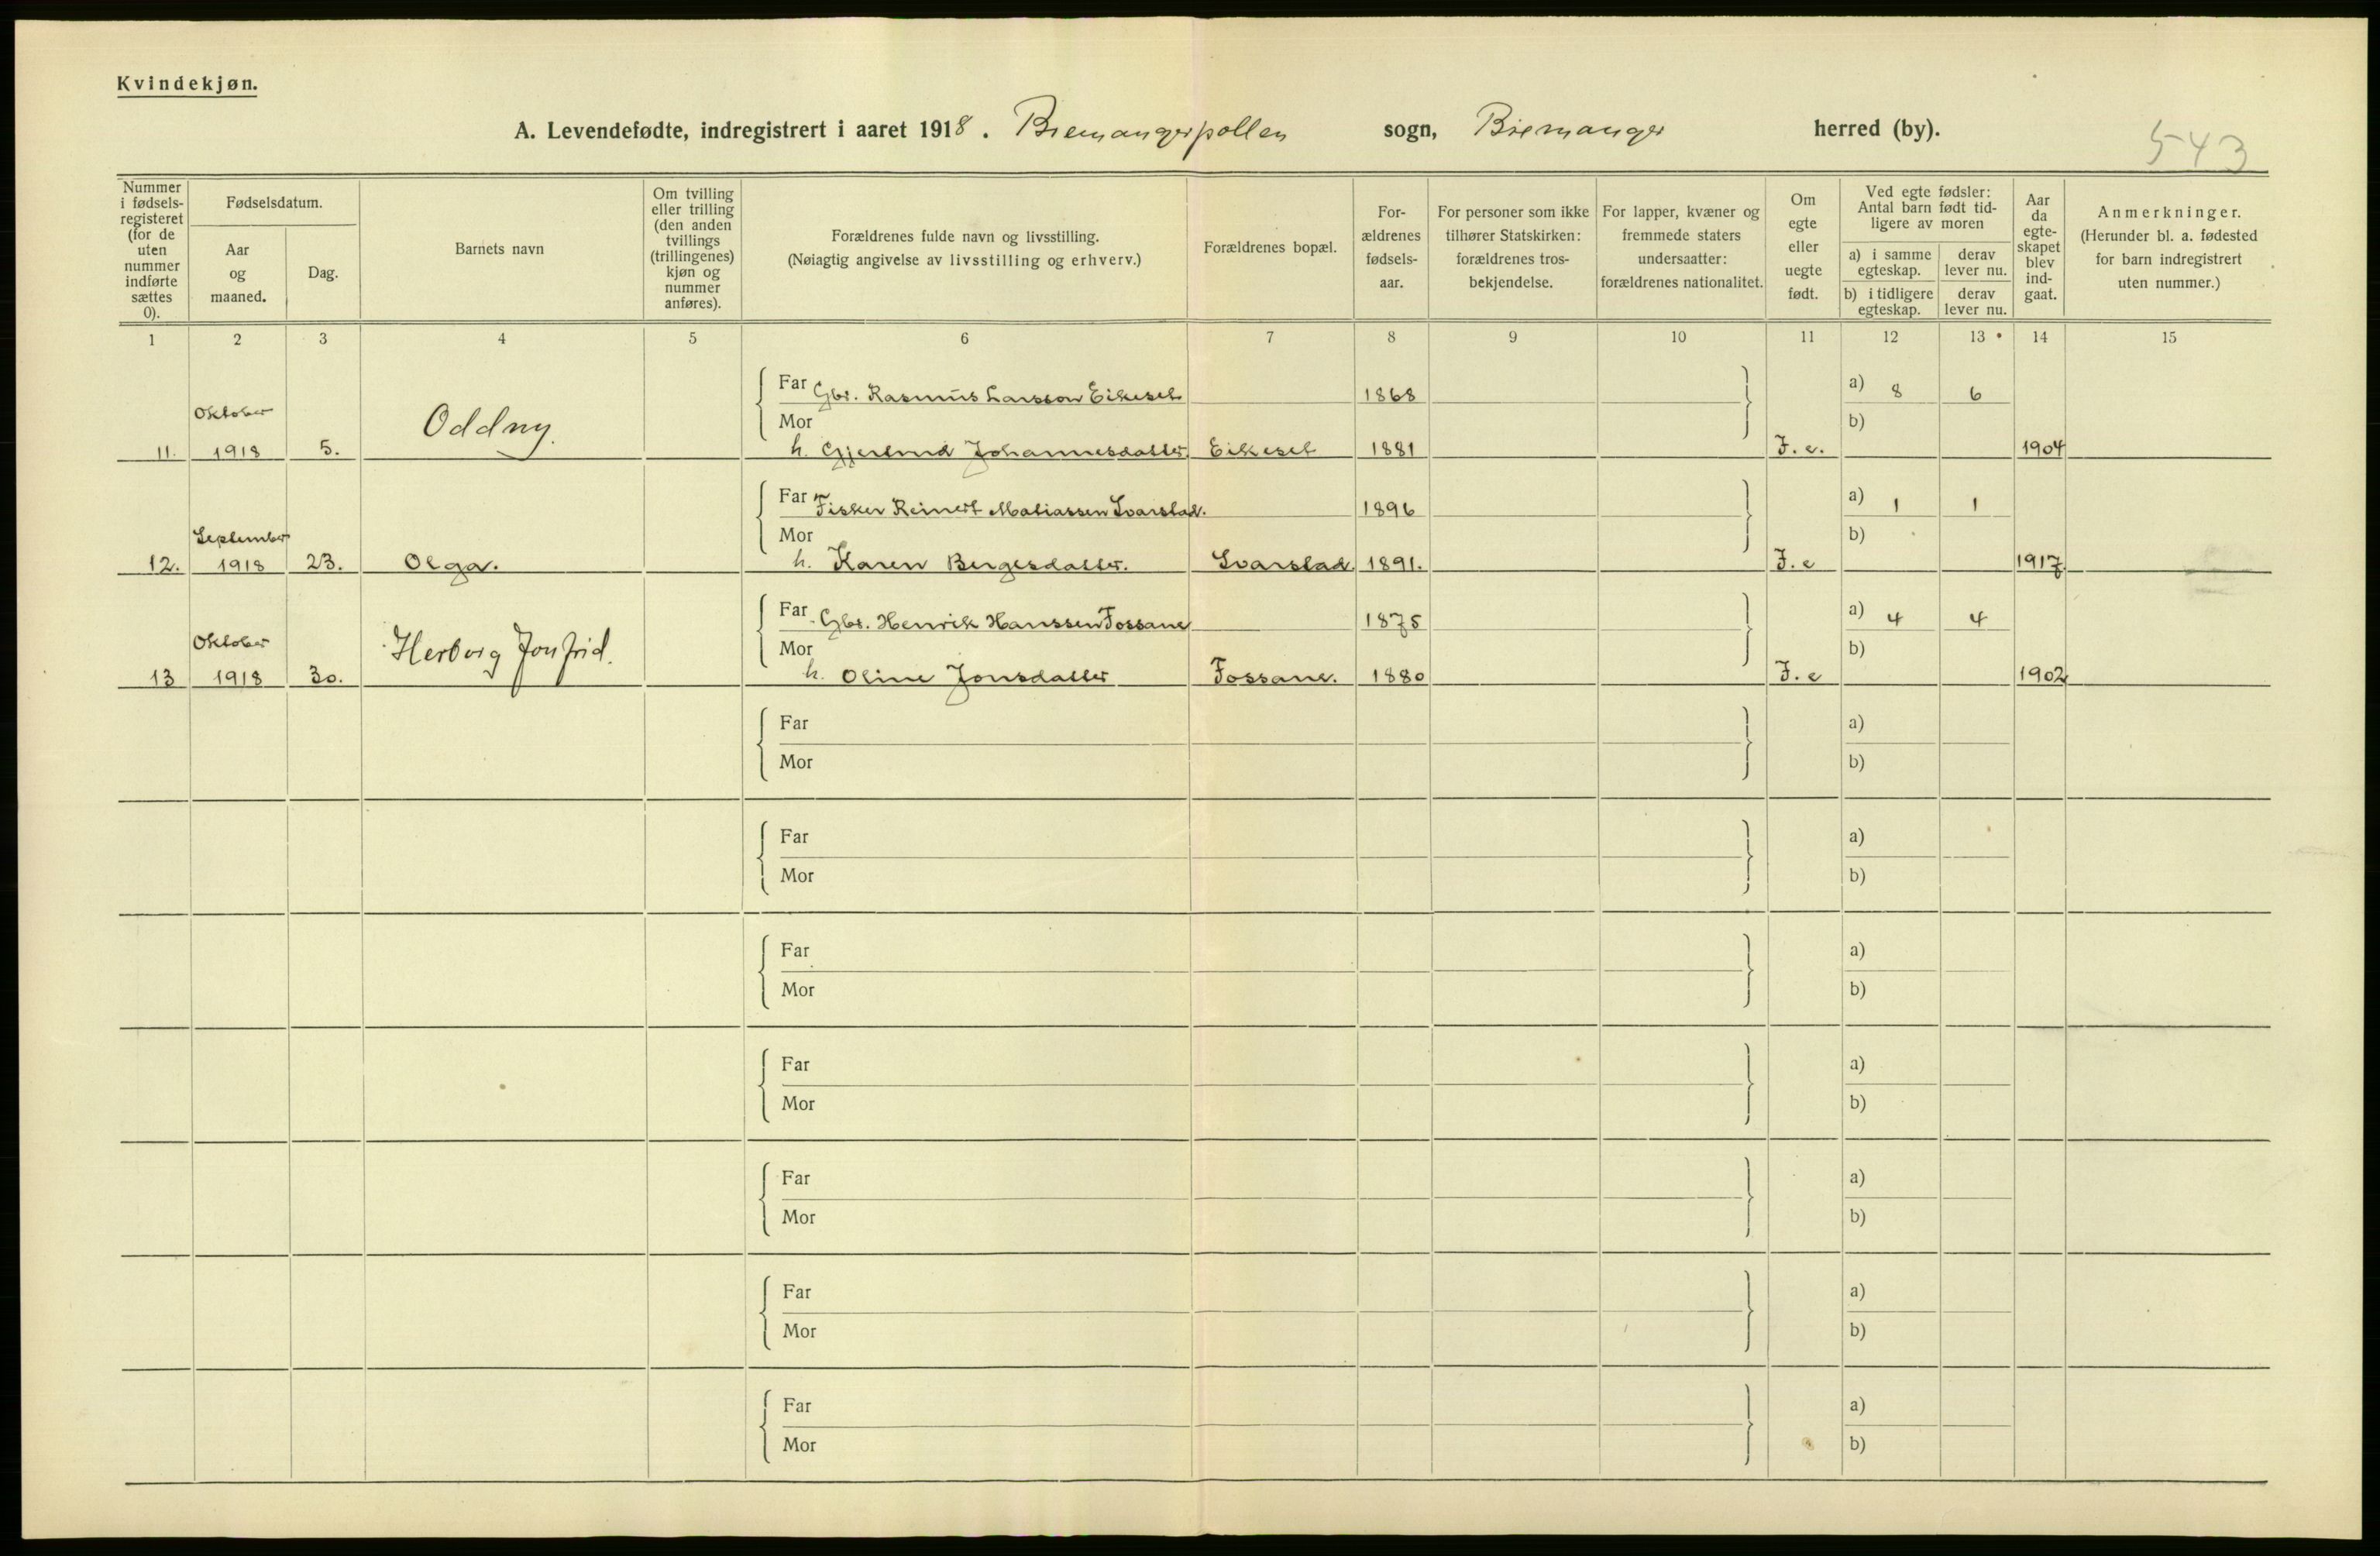 Kvindekjøn.
A. Levendefødte, indregistrert i aaret 1918. Bremangerpollen sogn, Bremanger herred (by).
543
Nummer i fødsels-registeret (for de uten nummer indførte sættes 0).
Fødselsdatum.
Aar og maaned.
Dag.
Barnets navn
Om tvilling eller trilling (den anden tvillings (trillingenes) kjøn og nummer anføres).
Forældrenes fulde navn og livsstilling.
(Nøiagtig angivelse av livsstilling og erhverv.)
Forældrenes bopæl.
For-ældrenes fødsels-aar.
For personer som ikke tilhører Statskirken: forældrenes tros-bekjendelse.
For lapper, kvæner og fremmede staters undersaatter: forældrenes nationalitet.
Om egte eller uegte født.
Ved egte fødsler: Antal barn født tid-ligere av moren
a) i samme egteskap.
derav lever nu.
b) i tidligere egteskap.
derav lever nu.
Aar da egte-skapet blev ind-gaat.
Anmerkninger.
(Herunder bl. a. fødested for barn indregistrert uten nummer.)
1 2 3 4 5 6 7 8 9 10 11 12 13 14 15
Far Gbr. Rasmus Larsson Eikeset 1868 a) 8 6
Oktober
Oddny.
Mor b)
11. 1918 5. h. Gjertrud Johannesdatter Eikeset 1881 F. e. 1904
Far Fisker Reinert Matiassen Svarstad. 1896 a) 1 1
September
Mor b)
12. 1918 23. Olga. h. Karen Bergesdatter. Svarstad 1891. F. e 1917.
Far Gbr. Henrik Hanssen Fossane 1875 a) 4 4
Oktober
Herborg Jonfrid.
Mor b)
13 1918 30. h. Oline Jonsdatter Fossane. 1880 F. e 1902
Far a)
Mor b)
Far a)
Mor b)
Far a)
Mor b)
Far a)
Mor b)
Far a)
Mor b)
Far a)
Mor b)
Far a)
Mor b)